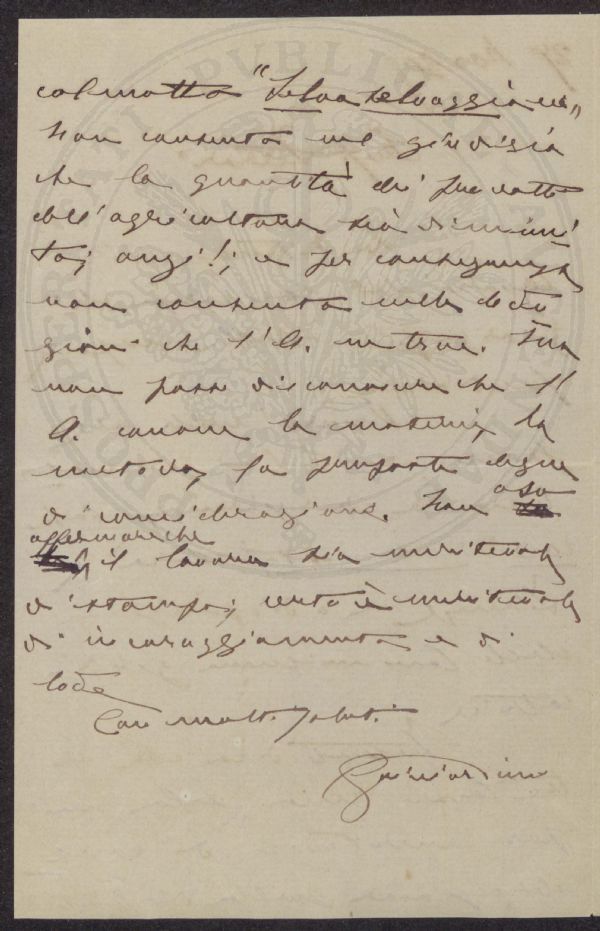 col motto "Selva selvaggia ecc"
Non consento nel giudizio
che la quantità di prodotti
dell'agricoltura sia diminui
ta; anzi!; e per conseguenza
non consento nelle dedu
zioni che l'A. ne trae. Ma
non posso disconoscere che l'
A. conosce la materia, ha
metodo, fa proposte degne
di considerazione. Non oso
affermare che
il lavoro sia meritevole
di stampa; certo è meritevole
di incoraggiamento e di
lode
Con molti saluti